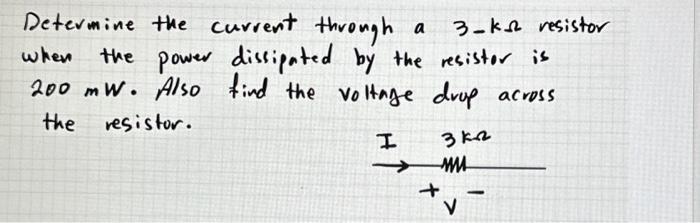 Determine the current through a 3-kΩ resistor
when the power dissipated by the resistor is
200 mW. Also find the voltage drop across
the resistor.
I 3kΩ
+ V -